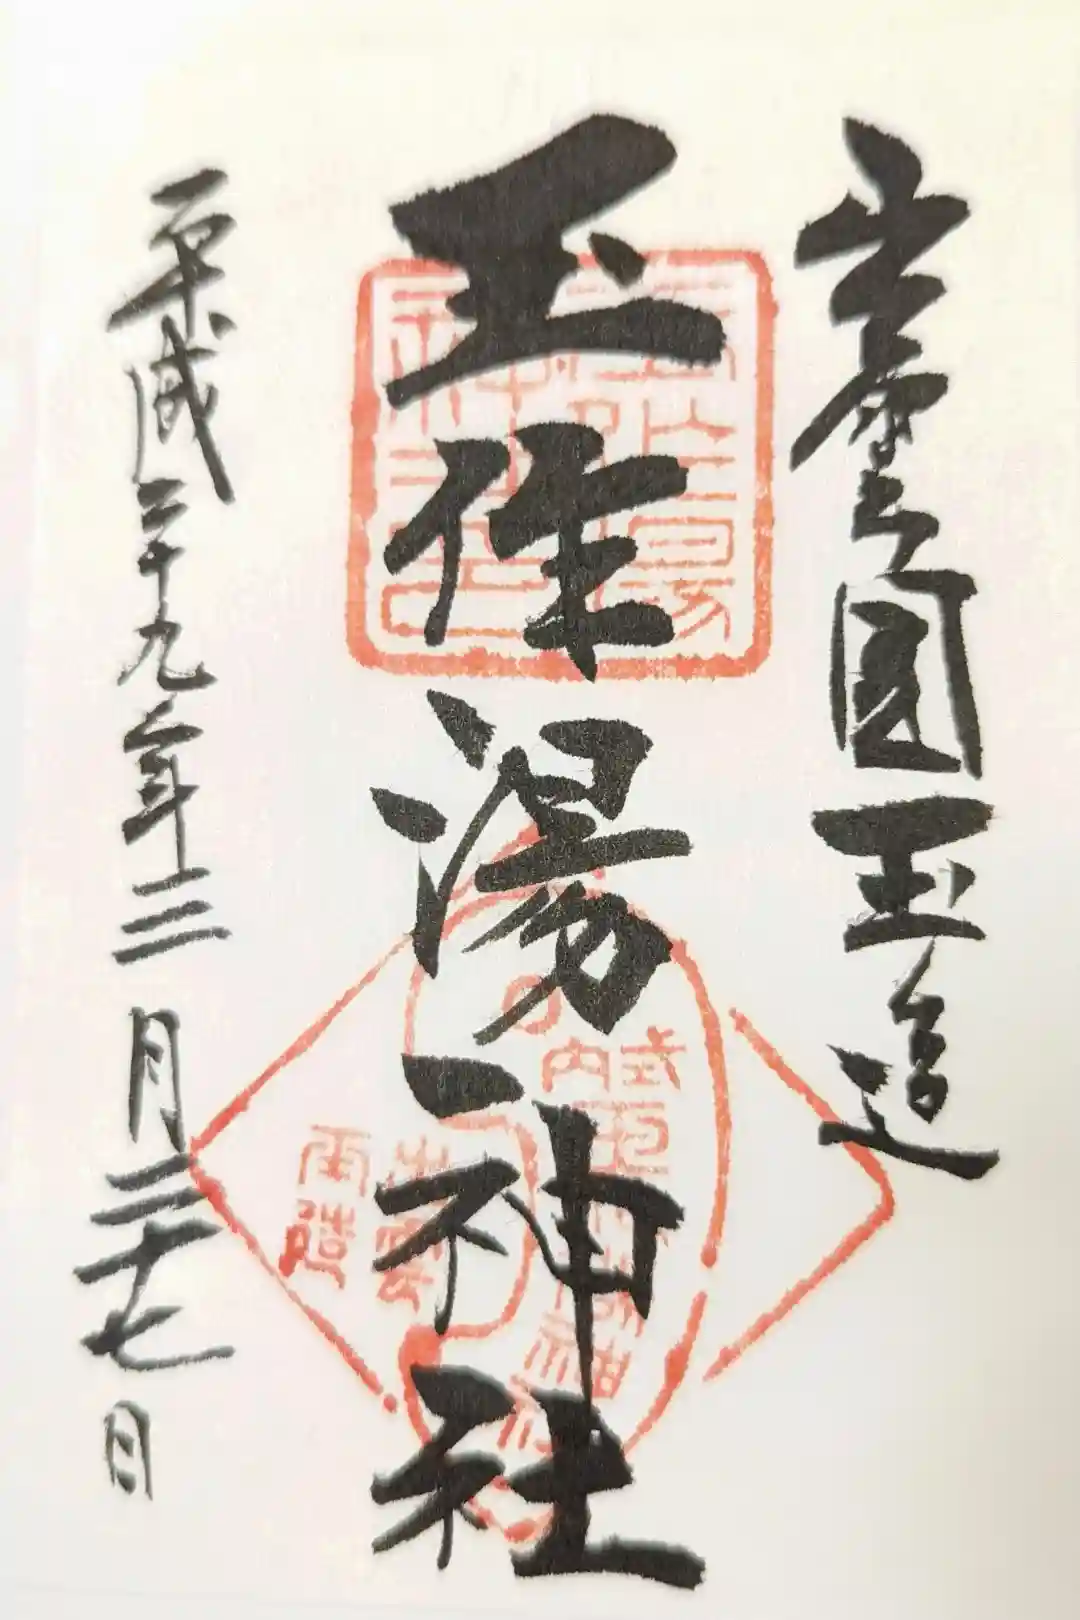 出雲國玉造
玉作湯神社
平成二十九年三月二十七日
式内玉作湯神社
出雲
玉造